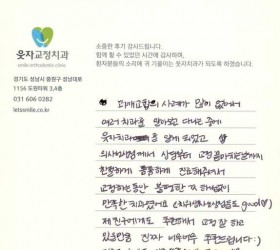 웃자교정치과
smile orthodontic clinic
경기도 성남시 중원구 성남대로
1156 도원타워 3,4층
031 606 0282
letssmile.co.kr
소중한 후기 감사드립니다.
함께 할 수 있었던 시간에 감사하며,
환자분들의 소리에 귀 기울이는 웃자치과가 되도록 하겠습니다.
사례가 많이 없어서
여러 치과를 알아보고 다니던 중에
웃자치과를 알게 되었고
의사선생님께서 상담부터 교정 끝마치는날까지
친절하게 꼼꼼하게 진료해주셔서
교정하는동안 불편함 없이
만족한 치과였어요 good♡
제 친구에게도 추천해서 교정 잘 하고
있을만큼 진짜 너무너무 추천드립니다:)